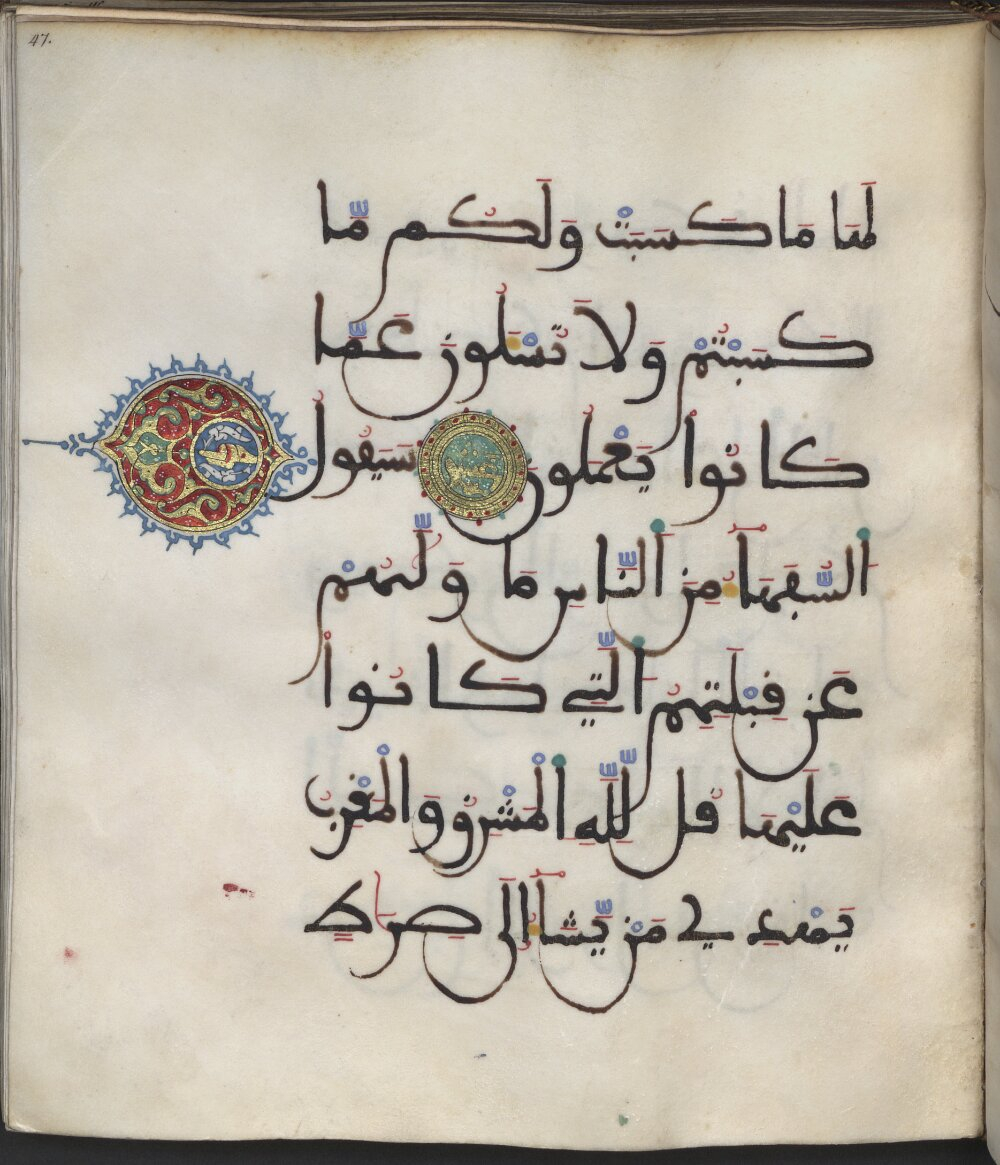 47.
لَهَا مَا كَسَبَتْ وَلَكُم مَّا
كَسَبْتُمْ وَلَا تُسْـَٔلُونَ عَمَّا
كَانُوا يَعْمَلُونَ سَيَقُولُ
اَلسُّفَهَآءُ مِنَ اَلنَّاسِ مَا وَلَّىٰهُمْ
عَن قِبْلَتِهِمُ اُلَّتِي كَانُوا
عَلَيْهَا قُل لِّلَّهِ اِلْمَشْرِقُ وَالْمَغْرِبُ
يَهْدِے مَنْ يَّشَآءُ اِلَىٰ صِرَٰطٍ